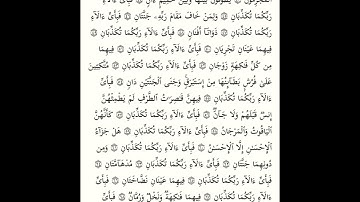 ٱلْمُجْرِمُونَ ۝ يَطُوفُونَ بَيْنَهَا وَبَيْنَ حَمِيمٍ ءَانٍ ۝ فَبِأَىِّ ءَالَآءِ
رَبِّكُمَا تُكَذِّبَانِ ۝ وَلِمَنْ خَافَ مَقَامَ رَبِّهِۦ جَنَّتَانِ ۝ فَبِأَىِّ ءَالَآءِ
رَبِّكُمَا تُكَذِّبَانِ ۝ ذَوَاتَآ أَفْنَانٍ ۝ فَبِأَىِّ ءَالَآءِ رَبِّكُمَا تُكَذِّبَانِ ۝
فِيهِمَا عَيْنَانِ تَجْرِيَانِ ۝ فَبِأَىِّ ءَالَآءِ رَبِّكُمَا تُكَذِّبَانِ ۝ فِيهِمَا
مِن كُلِّ فَٰكِهَةٍ زَوْجَانِ ۝ فَبِأَىِّ ءَالَآءِ رَبِّكُمَا تُكَذِّبَانِ ۝ مُتَّكِـِٔينَ
عَلَىٰ فُرُشٍۭ بَطَآئِنُهَا مِنْ إِسْتَبْرَقٍ ۚ وَجَنَى ٱلْجَنَّتَيْنِ دَانٍ ۝ فَبِأَىِّ
ءَالَآءِ رَبِّكُمَا تُكَذِّبَانِ ۝ فِيهِنَّ قَٰصِرَٰتُ ٱلطَّرْفِ لَمْ يَطْمِثْهُنَّ
إِنسٌ قَبْلَهُمْ وَلَا جَآنٌّ ۝ فَبِأَىِّ ءَالَآءِ رَبِّكُمَا تُكَذِّبَانِ ۝ كَأَنَّهُنَّ
ٱلْيَاقُوتُ وَٱلْمَرْجَانُ ۝ فَبِأَىِّ ءَالَآءِ رَبِّكُمَا تُكَذِّبَانِ ۝ هَلْ جَزَآءُ
ٱلْإِحْسَٰنِ إِلَّا ٱلْإِحْسَٰنُ ۝ فَبِأَىِّ ءَالَآءِ رَبِّكُمَا تُكَذِّبَانِ ۝ وَمِن
دُونِهِمَا جَنَّتَانِ ۝ فَبِأَىِّ ءَالَآءِ رَبِّكُمَا تُكَذِّبَانِ ۝ مُدْهَآمَّتَانِ ۝
فَبِأَىِّ ءَالَآءِ رَبِّكُمَا تُكَذِّبَانِ ۝ فِيهِمَا عَيْنَانِ نَضَّاخَتَانِ ۝
فَبِأَىِّ ءَالَآءِ رَبِّكُمَا تُكَذِّبَانِ ۝ فِيهِمَا فَٰكِهَةٌ وَنَخْلٌ وَرُمَّانٌ ۝